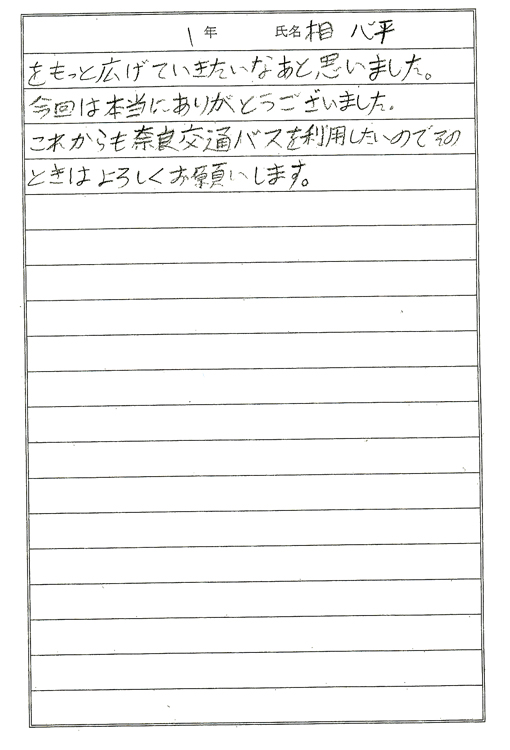 1年 氏名 相 心平
をもっと広げていきたいなあと思いました。
今回は本当にありがとうございました。
これからも奈良交通バスを利用したいのでその
ときはよろしくお願いします。